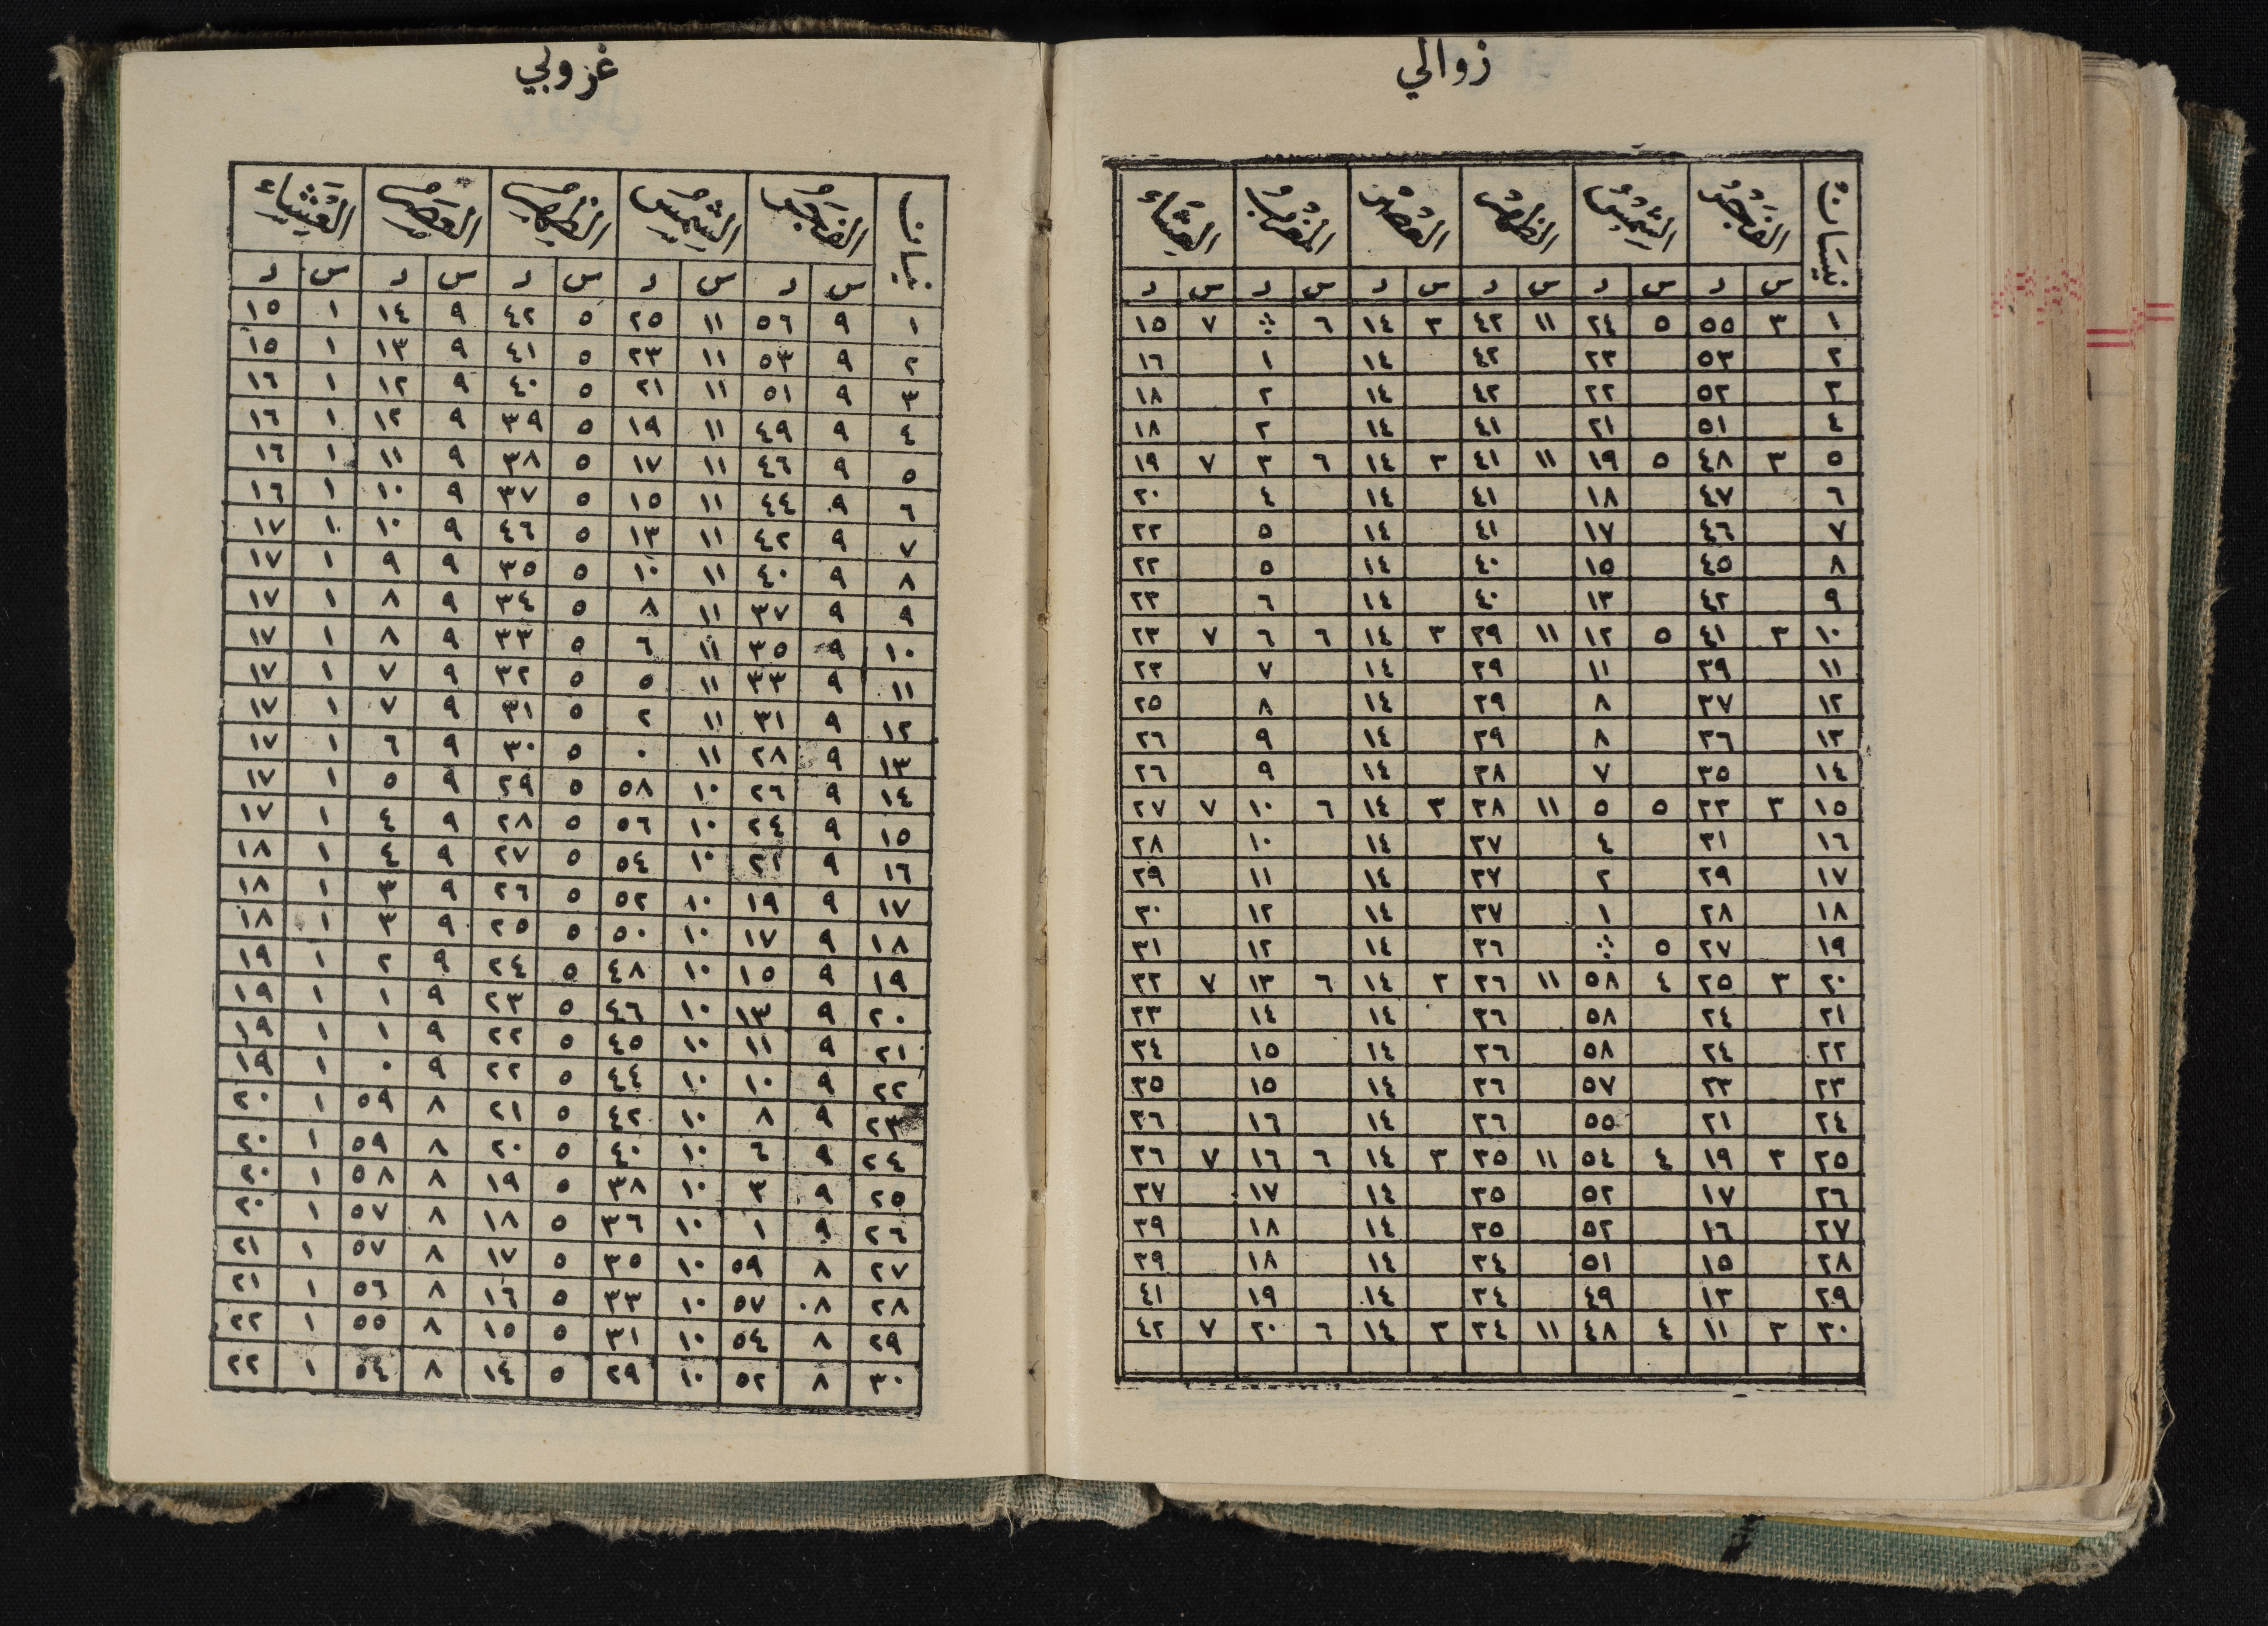 زوالي
نيسان الفجر الشمس الظهر العصر المغرب العشاء
س د س د س د س د س د س د
١ ٣ ٥٥ ٥ ٢٤ ١١ ٤٢ ٣ ١٤ ٦ ٧ ١٥
٢ ٥٣ ٢٣ ٤٢ ١٤ ١ ١٦
٣ ٥٢ ٢٢ ٤٢ ١٤ ٢ ١٨
٤ ٥١ ٢١ ٤١ ١٤ ٢ ١٨
٥ ٣ ٤٨ ٥ ١٩ ١١ ٤١ ٣ ١٤ ٦ ٣ ٧ ١٩
٦ ٤٧ ١٨ ٤١ ١٤ ٤ ٢٠
٧ ٤٦ ١٧ ٤١ ١٤ ٥ ٢٢
٨ ٤٥ ١٥ ٤٠ ١٤ ٥ ٢٢
٩ ٤٢ ١٣ ٤٠ ١٤ ٦ ٢٣
١٠ ٣ ٤١ ٥ ١٢ ١١ ٣٩ ٣ ١٤ ٦ ٦ ٧ ٢٣
١١ ٣٩ ١١ ٣٩ ١٤ ٧ ٢٣
١٢ ٣٧ ٨ ٣٩ ١٤ ٨ ٢٥
١٣ ٣٦ ٨ ٣٩ ١٤ ٩ ٢٦
١٤ ٣٥ ٧ ٣٨ ١٤ ٩ ٢٦
١٥ ٣ ٣٣ ٥ ٥ ١١ ٣٨ ٣ ١٤ ٦ ١٠ ٧ ٢٧
١٦ ٣١ ٤ ٣٧ ١٤ ١٠ ٢٨
١٧ ٢٩ ٢ ٣٧ ١٤ ١١ ٢٩
١٨ ٢٨ ١ ٣٧ ١٤ ١٢ ٣٠
١٩ ٢٧ ٥ ٣٦ ١٤ ١٢ ٣١
٢٠ ٣ ٢٥ ٤ ٥٨ ١١ ٣٦ ٣ ١٤ ٦ ١٣ ٧ ٣٢
٢١ ٢٤ ٥٨ ٣٦ ١٤ ١٤ ٣٣
٢٢ ٢٤ ٥٨ ٣٦ ١٤ ١٥ ٣٤
٢٣ ٢٣ ٥٧ ٣٦ ١٤ ١٥ ٣٥
٢٤ ٢١ ٥٥ ٣٦ ١٤ ١٦ ٣٦
٢٥ ٣ ١٩ ٤ ٥٤ ١١ ٣٥ ٣ ١٤ ٦ ١٦ ٧ ٣٦
٢٦ ١٧ ٥٢ ٣٥ ١٤ ١٧ ٣٧
٢٧ ١٦ ٥٢ ٣٥ ١٤ ١٨ ٣٩
٢٨ ١٥ ٥١ ٣٤ ١٤ ١٨ ٣٩
٢٩ ١٣ ٤٩ ٣٤ ١٤ ١٩ ٤١
٣٠ ٣ ١١ ٤ ٤٨ ١١ ٣٤ ٣ ١٤ ٦ ٢٠ ٧ ٤٢
غروبي
نيسان الفجر الشمس الظهر العصر العشاء
س د س د س د س د س د
١ ٩ ٥٦ ١١ ٢٥ ٥ ٤٢ ٩ ١٤ ١ ١٥
٢ ٩ ٥٣ ١١ ٢٣ ٥ ٤١ ٩ ١٣ ١ ١٥
٣ ٩ ٥١ ١١ ٢١ ٥ ٤٠ ٩ ١٢ ١ ١٦
٤ ٩ ٤٩ ١١ ١٩ ٥ ٣٩ ٩ ١٢ ١ ١٦
٥ ٩ ٤٦ ١١ ١٧ ٥ ٣٨ ٩ ١١ ١ ١٦
٦ ٩ ٤٤ ١١ ١٥ ٥ ٣٧ ٩ ١٠ ١ ١٦
٧ ٩ ٤٢ ١١ ١٣ ٥ ٤٦ ٩ ١٠ ١ ١٧
٨ ٩ ٤٠ ١١ ١٠ ٥ ٣٥ ٩ ٩ ١ ١٧
٩ ٩ ٣٧ ١١ ٨ ٥ ٣٤ ٩ ٨ ١ ١٧
١٠ ٩ ٣٥ ١١ ٦ ٥ ٣٣ ٩ ٨ ١ ١٧
١١ ٩ ٣٣ ١١ ٥ ٥ ٣٢ ٩ ٧ ١ ١٧
١٢ ٩ ٣١ ١١ ٢ ٥ ٣١ ٩ ٧ ١ ١٧
١٣ ٩ ٢٨ ١١ ٠ ٥ ٣٠ ٩ ٦ ١ ١٧
١٤ ٩ ٢٦ ١٠ ٥٨ ٥ ٢٩ ٩ ٥ ١ ١٧
١٥ ٩ ٢٤ ١٠ ٥٦ ٥ ٢٨ ٩ ٤ ١ ١٧
١٦ ٩ ٢١ ١٠ ٥٤ ٥ ٢٧ ٩ ٤ ١ ١٨
١٧ ٩ ١٩ ١٠ ٥٢ ٥ ٢٦ ٩ ٣ ١ ١٨
١٨ ٩ ١٧ ١٠ ٥٠ ٥ ٢٥ ٩ ٣ ١ ١٨
١٩ ٩ ١٥ ١٠ ٤٨ ٥ ٢٤ ٩ ٢ ١ ١٩
٢٠ ٩ ١٣ ١٠ ٤٦ ٥ ٢٣ ٩ ١ ١ ١٩
٢١ ٩ ١١ ١٠ ٤٥ ٥ ٢٢ ٩ ١ ١ ١٩
٢٢ ٩ ١٠ ١٠ ٤٤ ٥ ٢٢ ٩ ٠ ١ ١٩
٢٣ ٩ ٨ ١٠ ٤٢ ٥ ٢١ ٨ ٥٩ ١ ٢٠
٢٤ ٩ ٦ ١٠ ٤٠ ٥ ٢٠ ٨ ٥٩ ١ ٢٠
٢٥ ٩ ٣ ١٠ ٣٨ ٥ ١٩ ٨ ٥٨ ١ ٢٠
٢٦ ٩ ١ ١٠ ٣٦ ٥ ١٨ ٨ ٥٧ ١ ٢٠
٢٧ ٨ ٥٩ ١٠ ٣٥ ٥ ١٧ ٨ ٥٧ ١ ٢١
٢٨ ٨ ٥٧ ١٠ ٣٣ ٥ ١٦ ٨ ٥٦ ١ ٢١
٢٩ ٨ ٥٤ ١٠ ٣١ ٥ ١٥ ٨ ٥٥ ١ ٢٢
٣٠ ٨ ٥٢ ١٠ ٢٩ ٥ ١٤ ٨ ٥٤ ١ ٢٢